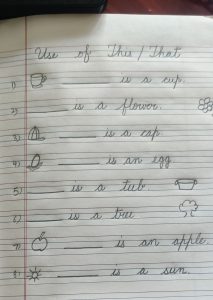 Use of This / That
1) ______ is a cup.
2) ______ is a flower.
3) ______ is a cap.
4) ______ is an egg
5) ______ is a tub
6) ______ is a tree
7) ______ is an apple.
8) ______ is a sun.